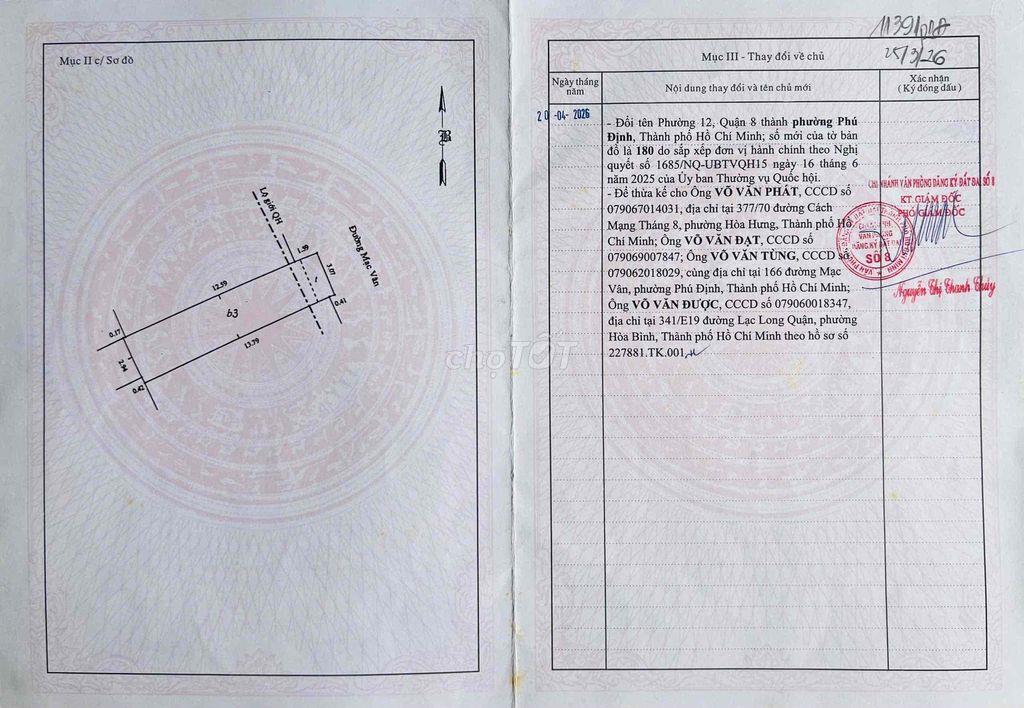 Mục II c/ Sơ đồ
B
Lộ giới QH
Đường Mạc Vân
1.59
3.07
0.41
12.59
b3
13.79
0.17
2.94
0.42
1139/
25/3/26
Mục III - Thay đổi về chủ
Ngày tháng
năm
Nội dung thay đổi và tên chủ mới
Xác nhận
( Ký đóng dấu )
20 -04- 2026
- Đổi tên Phường 12, Quận 8 thành phường Phú
Định, Thành phố Hồ Chí Minh; số mới của tờ bản
đồ là 180 do sắp xếp đơn vị hành chính theo Nghị
quyết số 1685/NQ-UBTVQH15 ngày 16 tháng 6
năm 2025 của Ủy ban Thường vụ Quốc hội.
- Để thừa kế cho Ông VÕ VĂN PHÁT, CCCD số
079067014031, địa chỉ tại 377/70 đường Cách
Mạng Tháng 8, phường Hòa Hưng, Thành phố Hồ
Chí Minh; Ông VÕ VĂN ĐẠT, CCCD số
079069007847; Ông VÕ VĂN TÙNG, CCCD số
079062018029, cùng địa chỉ tại 166 đường Mạc
Vân, phường Phú Định, Thành phố Hồ Chí Minh;
Ông VÕ VĂN ĐƯỢC, CCCD số 079060018347,
địa chỉ tại 341/E19 đường Lạc Long Quân, phường
Hòa Bình, Thành phố Hồ Chí Minh theo hồ sơ số
227881.TK.001
CHI NHÁNH VĂN PHÒNG ĐĂNG KÝ ĐẤT ĐAI SỐ 8
KT. GIÁM ĐỐC
PHÓ GIÁM ĐỐC
CHI NHÁNH
VĂN PHÒNG
ĐĂNG KÝ ĐẤT ĐAI
SỐ 8
Nguyễn Thị Thanh Thúy
chợTỐT